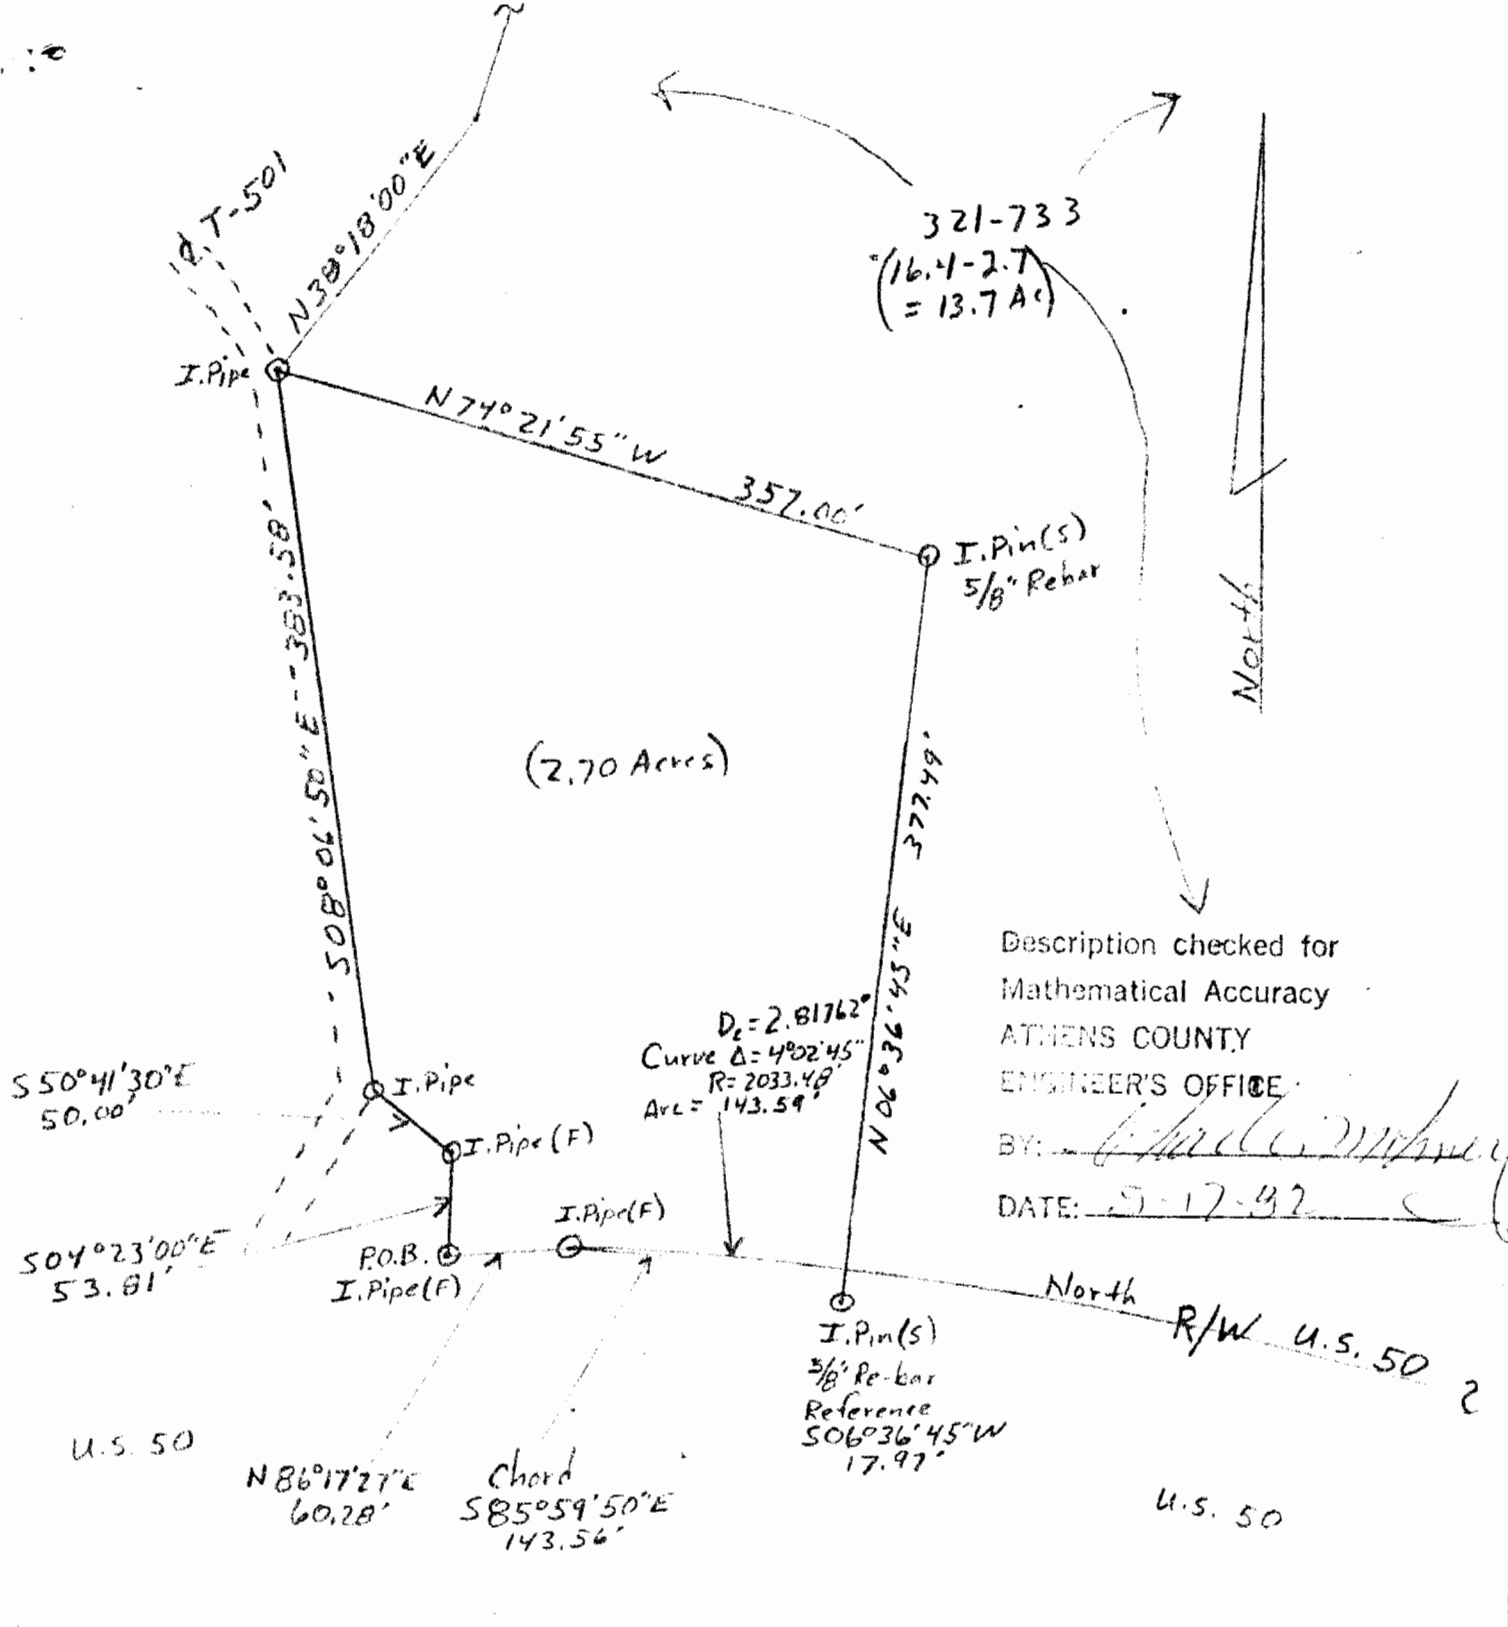 ℄ T-501
N38°18'00"E
321-733
(16.4-2.7
= 13.7 Ac)
I.Pipe
N74°21'55"W 357.00'
I.Pin(S)
5/8" Rebar
North
S08°06'50"E - 383.58'
(2.70 Acres)
N06°36'45"E 377.49'
Description checked for
Mathematical Accuracy
ATHENS COUNTY
ENGINEER'S OFFICE
BY:
DATE:
Dc=2.81762°
Curve Δ=4°02'45"
R=2033.48'
Arc= 143.59'
S50°41'30"E
50.00'
I.Pipe
I.Pipe(F)
I.Pipe(F)
S04°23'00"E
53.81'
P.O.B.
I.Pipe(F)
North R/W U.S. 50
I.Pin(S)
5/8" Re-bar
Reference
S06°36'45"W
17.97'
U.S. 50
N86°17'27"E
60.28'
Chord
S85°59'50"E
143.56'
U.S. 50